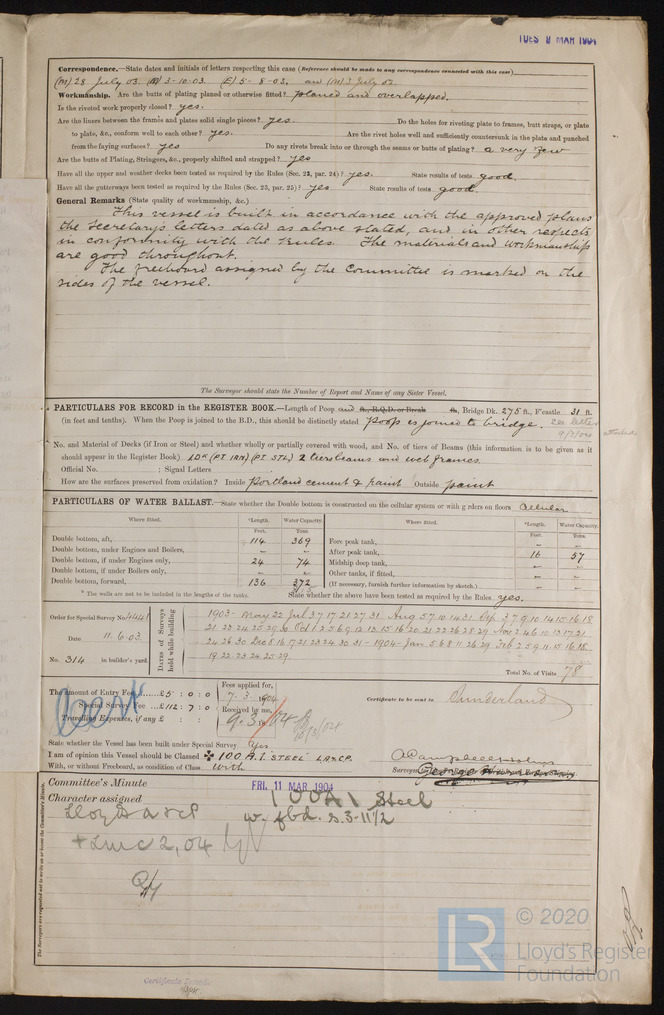 TUES 8 MAR 1904
Correspondence.—State dates and initials of letters respecting this case (Reference should be made to any correspondence connected with this case)
(M) 28 July 03. (M) 3-10-03. (E) 5-8-03. and (M) 3 July 03
Workmanship. Are the butts of plating planed or otherwise fitted? planed and overlapped.
Is the riveted work properly closed? yes.
Are the liners between the frames and plates solid single pieces? yes. Do the holes for riveting plate to frames, butt straps, or plate
to plate, &c., conform well to each other? yes. Are the rivet holes well and sufficiently countersunk in the plate and punched
from the faying surfaces? yes Do any rivets break into or through the seams or butts of plating? a very few
Are the butts of Plating, Stringers, &c., properly shifted and strapped? yes
Have all the upper and weather decks been tested as required by the Rules (Sec. 23, par. 24)? yes. State results of tests good.
Have all the gutterways been tested as required by the Rules (Sec. 23, par. 25)? yes. State results of tests good.
General Remarks (State quality of workmanship, &c.)
This vessel is built in accordance with the approved plans
the Secretary's letters dated as above stated, and in other respects
in conformity with the Rules The materials and workmanship
are good throughout.
The freeboard assigned by the Committee is marked on the
sides of the vessel.
The Surveyor should state the Number of Report and Name of any Sister Vessel.
PARTICULARS FOR RECORD in the REGISTER BOOK.—Length of Poop and ft., R.Q.D. or Break ft., Bridge Dk. 275 ft., F'castle 31 ft.
(in feet and tenths). When the Poop is joined to the B.D., this should be distinctly stated Poop is joined to bridge. See letter
9/3/04 attached
No. and Material of Decks (if Iron or Steel) and whether wholly or partially covered with wood, and No. of tiers of Beams (this information is to be given as it
should appear in the Register Book) 1 Dk (Pt IRN) (Pt STL) 2 tiers beams and web frames.
Official No. ; Signal Letters
How are the surfaces preserved from oxidation? Inside Portland cement & paint Outside paint
PARTICULARS OF WATER BALLAST.—State whether the Double bottom is constructed on the cellular system or with girders on floors Cellular
Where fitted. *Length. Water Capacity. Where fitted. *Length. Water Capacity.
Feet. Tons. Feet. Tons.
Double bottom, aft, 114 369 Fore peak tank, – –
Double bottom, under Engines and Boilers, – – After peak tank, 16 57
Double bottom, if under Engines only, 24 74 Midship deep tank, – –
Double bottom, if under Boilers only, – – Other tanks, if fitted, – –
Double bottom, forward, 136 372 (If necessary, furnish further information by sketch.) – –
* The wells are not to be included in the lengths of the tanks. State whether the above have been tested as required by the Rules yes.
Order for Special Survey No. 4448
Date 11.6.03.
No. 314 in builder's yard.
Dates of Surveys held while building
1903- May 22 Jul 3 7 17 21 27 31 Aug 5 7 10 14 31 Sep 3 7 9 10 14 15 16 18
21 23 24 25 29 30 Oct 1 2 5 6 9 12 13 15 16 20 21 22 26 28 29 Nov 2 4 6 10 13 17 21
24 26 30 Dec 8 16 17 21 23 24 30 31 - 1904 - Jan 5 6 8 11 26 29 Feb 2 5 9 11 15 16 18
19 22 23 24 25 29.
Total No. of Visits 78
The Amount of Entry Fee £5 : 0 : 0
Special Survey Fee £112 : 7 : 0
Travelling Expenses, if any £ : :
Fees applied for,
7.3.1904
Received by me,
9.3.1904
10/3/04
Certificate to be sent to Sunderland
State whether the Vessel has been built under Special Survey yes
I am of opinion this Vessel should be Classed ✠ 100 A.1. STEEL LR&CP.
With, or without Freeboard, as condition of Class With
Committee's Minute FRI. 11 MAR 1904
Character assigned 100A1 Steel
Lloyds A & CP w. fbd. s. 3-11½
+ LMC 2,04
The Surveyors are requested not to write on or below the Committee's Minute.
© 2020
LR
Lloyd's Register
Foundation